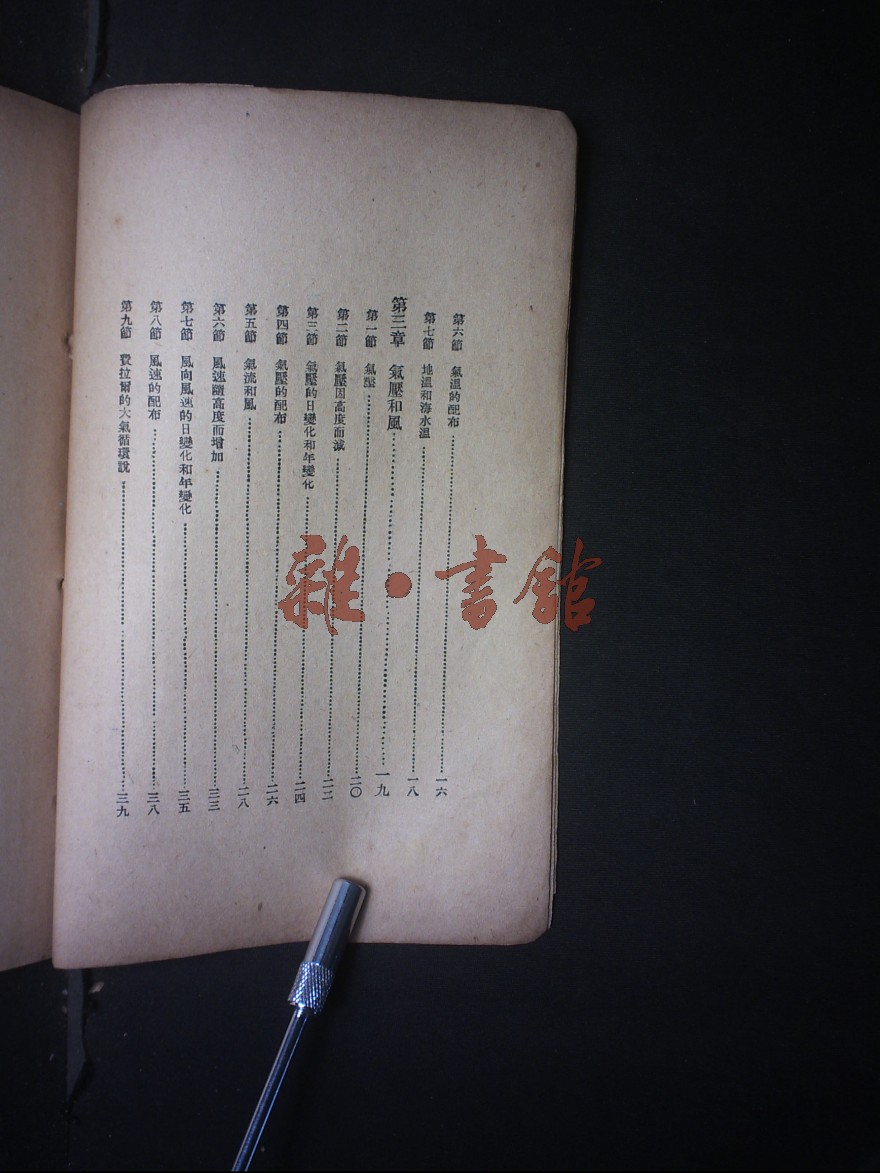 第六節　氣溫的配布……一六
第七節　地溫和海水溫……一八
第三章　氣壓和風……一九
第一節　氣壓……二〇
第二節　氣壓因高度而減……二二
第三節　氣壓的日變化和年變化……二四
第四節　氣壓的配布……二六
第五節　氣流和風……二八
第六節　風速隨高度而增加……三三
第七節　風向風速的日變化和年變化……三五
第八節　風速的配布……三八
第九節　費拉爾的大氣循環說……三九
雜・書館